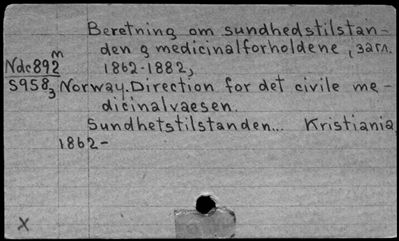 Beretning om sundhedstilstan-
den g medicinalforholdene, 3arn.
Ndc892m 1862-1882,
S9583 Norway. Direction for det civile me-
dicinalvaesen.
Sundhetstilstanden... Kristiania
1862-
X